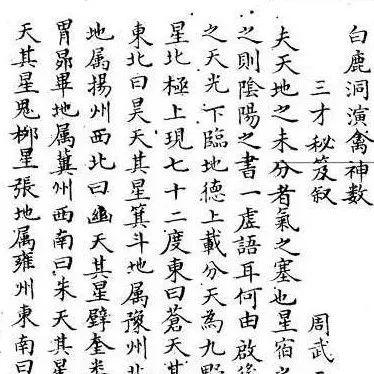 白鹿洞演禽神数
三才秘笈叙 周武
夫天地之未分者氣之塞也星宿之
之則陰陽之書一虛語耳何由啟後
之天光下臨地德上載分天為九野
星北極上現七十二度東曰蒼天其
東北曰昊天其星箕斗地属豫州北
地属揚州西北曰幽天其星壁奎婁
胃昴畢地属冀州西南曰朱天其星
天其星鬼柳星張地属雍州東南曰